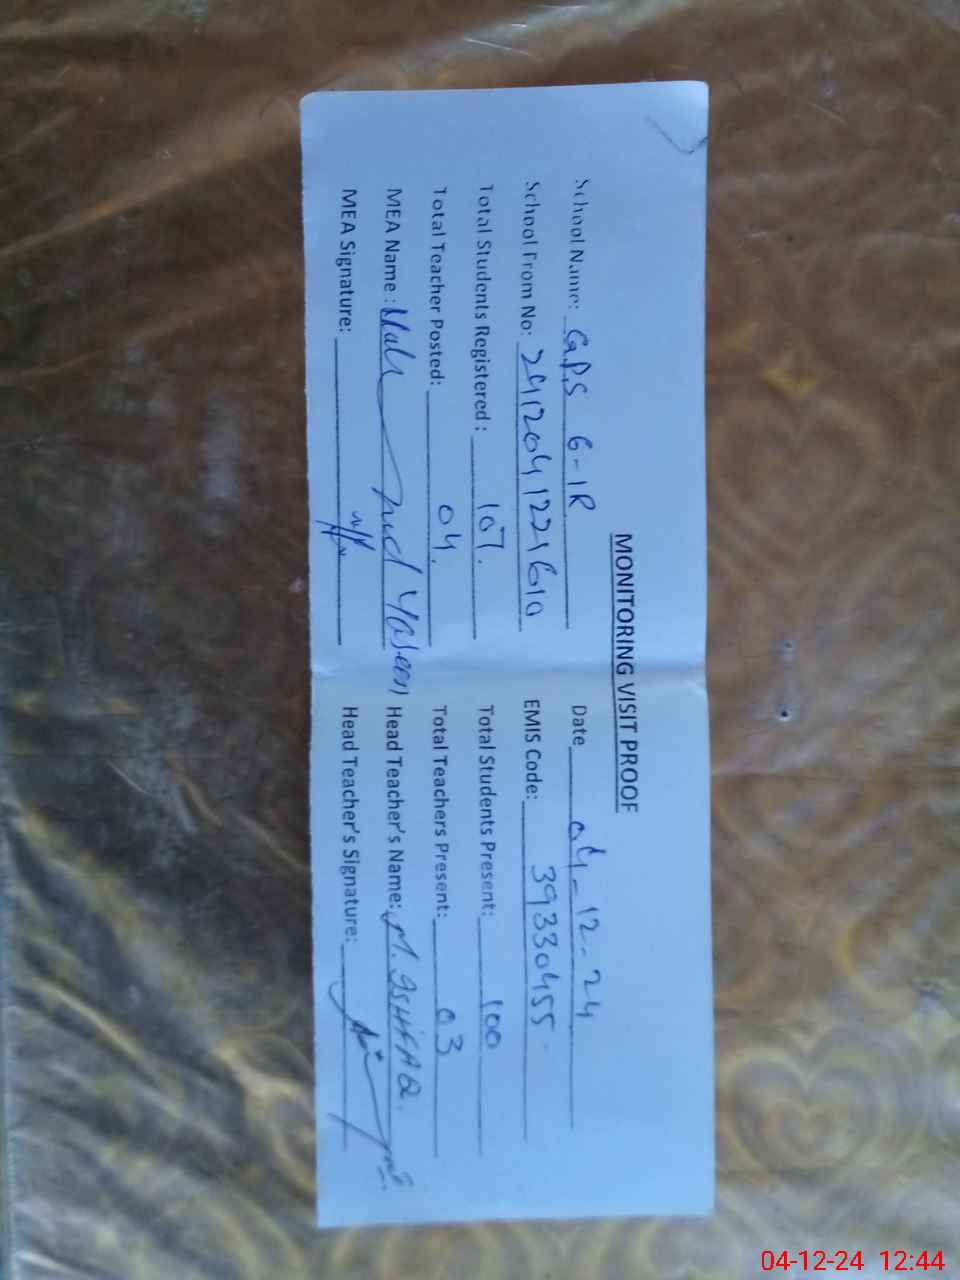 MONITORING VISIT PROOF
School Name: G.P.S 6-1R Date 04-12-24
School From No: 241204122160 EMIS Code: 39330455
Total Students Registered: 107. Total Students Present: 100
Total Teacher Posted: 04. Total Teachers Present: 03
MEA Name: Yaseen Head Teacher's Name: M. ISHFAQ.
MEA Signature: Head Teacher's Signature:
04-12-24 12:44